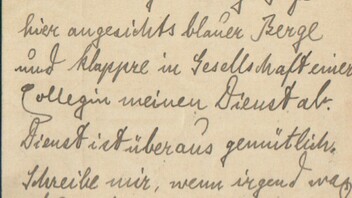 hier angesichts blauer Berge
und klappre in Gesellschaft einer
Collegin meinen Dienst ab.
Dienst ist überaus gemütlich.
Schreibe mir, wenn irgend was